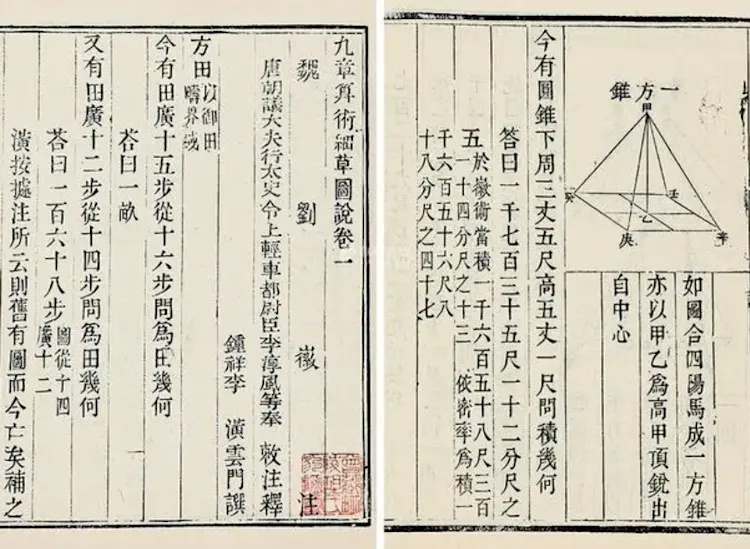 九章算術細草圖說卷一
魏 劉 徽 注
唐朝議大夫行太史令上輕車都尉臣李淳風等奉 敕注釋
鍾祥李 潢雲門譔
方田以御田
疇界域
今有田廣十五步從十六步問爲田幾何
荅曰一畝
又有田廣十二步從十四步問爲田幾何
荅曰一百六十八步圖從十四
廣十二
潢按據注所云則舊有圖而今亡矣補之
一方錐
甲
癸
壬
乙
庚
辛
如圖合四陽馬成一方錐
亦以甲乙爲高甲頂銳出
自中心
今有圓錐下周三丈五尺高五丈一尺問積幾何
答曰一千七百三十五尺一十二分尺之
五於徽術當積一千六百五十八尺三百
一十四分尺之十三 依密率爲積一
千六百五十六尺八
十八分尺之四十七